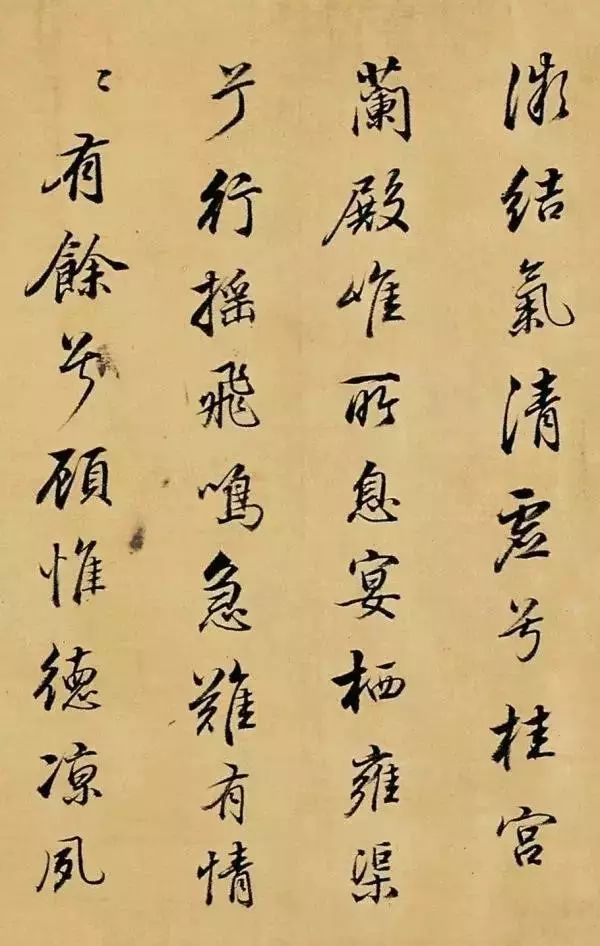 微結氣清虛兮桂宮
蘭殿唯所息宴栖雍渠
兮行摇飛鳴急難有情
〻有餘兮顧惟德凉夙